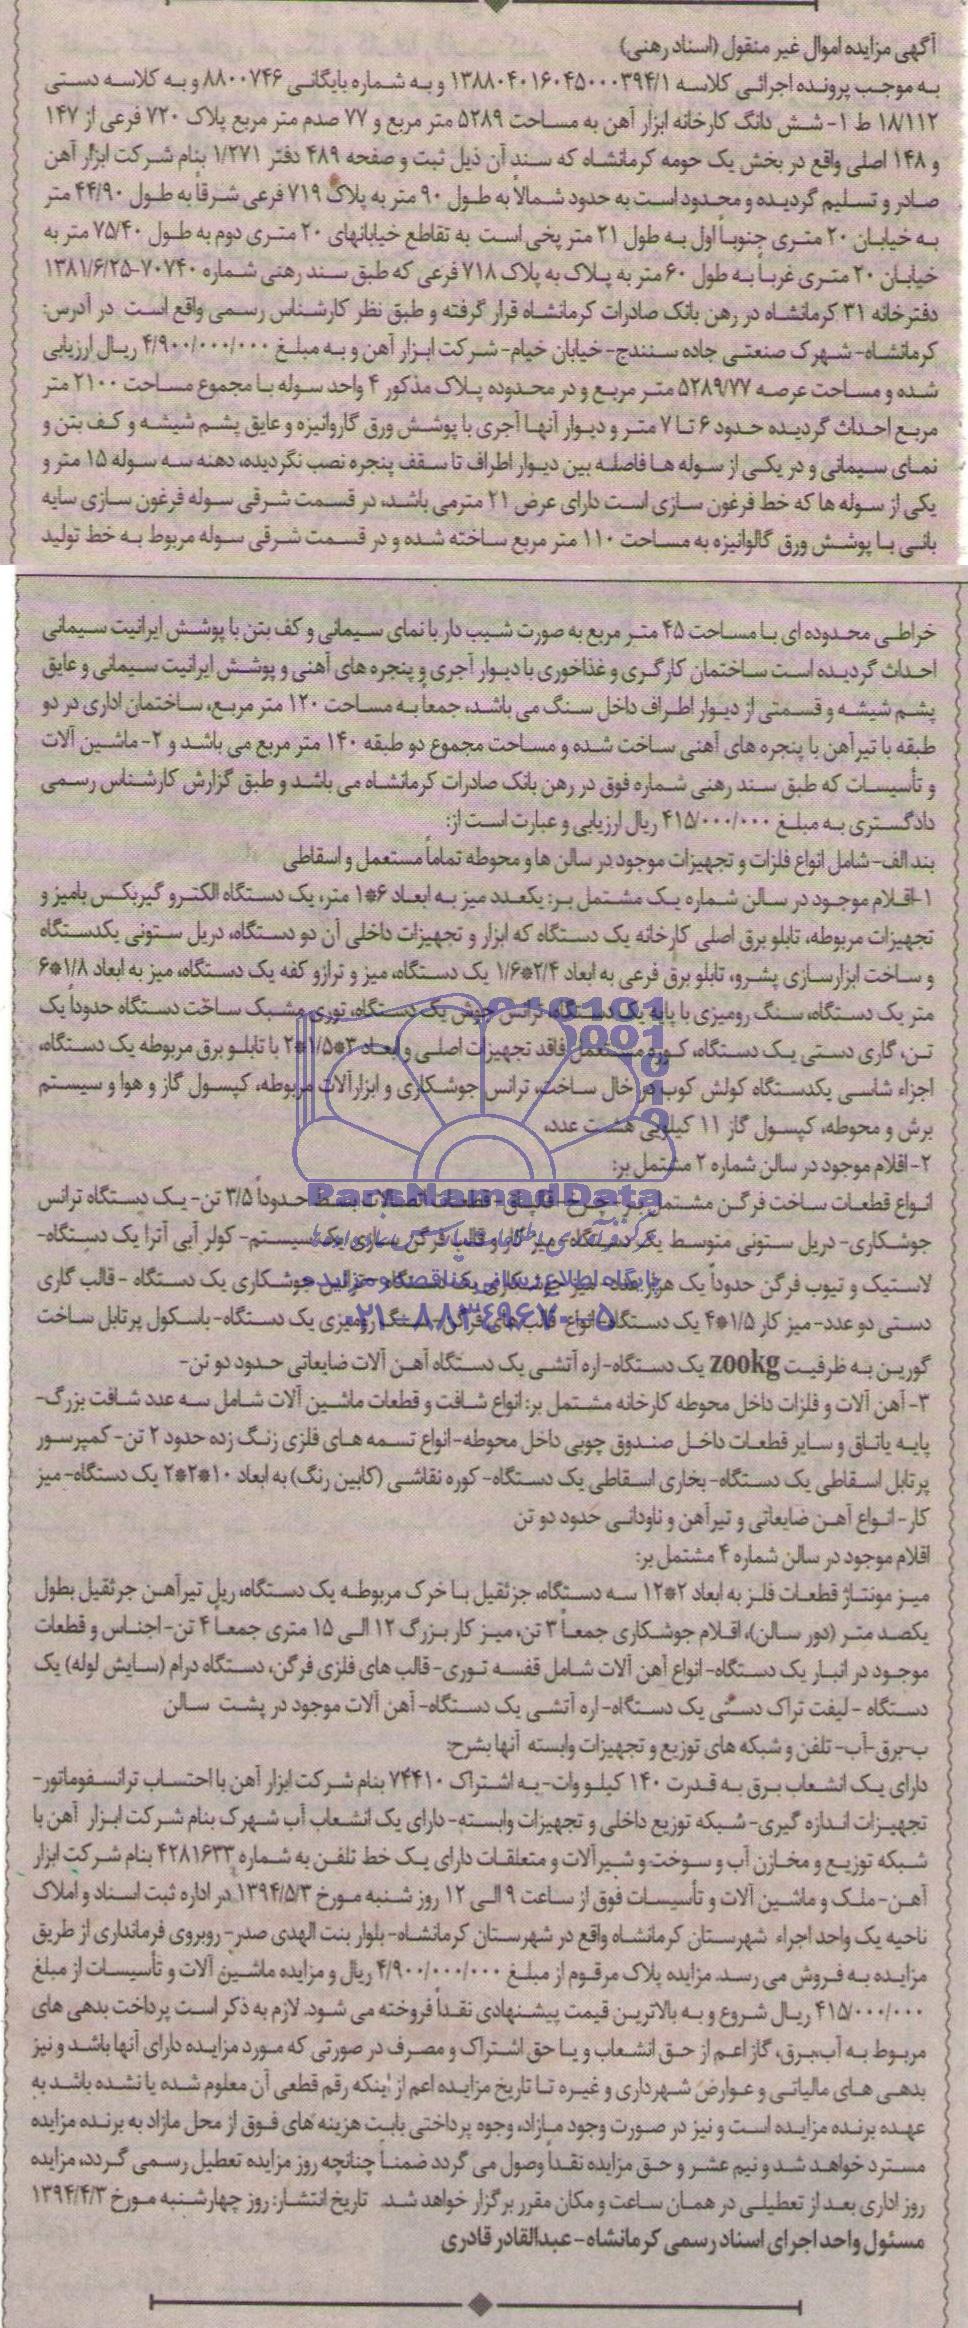 آگهی مزایده اموال غیر منقول (اسناد رهنی)
به موجب پرونده اجرائی کلاسه ۱۳۸۸۰۴۰۱۶۰۴۵۰۰۰۳۹۴/۱ و به شماره بایگانی ۸۸۰۰۷۴۶ و به کلاسه دستی
۱۸/۱۱۲ ط ۱- شش دانگ کارخانه ابزار آهن به مساحت ۵۲۸۹ متر مربع و ۷۷ صدم متر مربع پلاک ۷۲۰ فرعی از ۱۴۷
و ۱۴۸ اصلی واقع در بخش یک حومه کرمانشاه که سند آن ذیل ثبت و صفحه ۴۸۹ دفتر ۱/۲۷۱ بنام شرکت ابزار آهن
صادر و تسلیم گردیده و محدود است به حدود شمالاً به طول ۹۰ متر به پلاک ۷۱۹ فرعی شرقاً به طول ۴۴/۹۰ متر
به خیابان ۲۰ متری جنوباً اول به طول ۲۱ متر پخی است به تقاطع خیابانهای ۲۰ متری دوم به طول ۷۵/۴۰ متر به
خیابان ۲۰ متری غرباً به طول ۶۰ متر به پلاک به پلاک ۷۱۸ فرعی که طبق سند رهنی شماره ۷۰۷۴۰-۱۳۸۱/۶/۲۵
دفترخانه ۳۱ کرمانشاه در رهن بانک صادرات کرمانشاه قرار گرفته و طبق نظر کارشناس رسمی واقع است در آدرس:
کرمانشاه- شهرک صنعتی جاده سنندج- خیابان خیام- شرکت ابزار آهن و به مبلغ ۴/۹۰۰/۰۰۰/۰۰۰ ریال ارزیابی
شده و مساحت عرصه ۵۲۸۹/۷۷ متر مربع و در محدوده پلاک مذکور ۴ واحد سوله با مجموع مساحت ۲۱۰۰ متر
مربع احداث گردیده حدود ۶ تا ۷ متر و دیوار آنها آجری با پوشش ورق گاروانیزه و عایق پشم شیشه و کف بتن و
نمای سیمانی و در یکی از سوله ها فاصله بین دیوار اطراف تا سقف پنجره نصب نگردیده، دهنه سه سوله ۱۵ متر و
یکی از سوله ها که خط فرغون سازی است دارای عرض ۲۱ مترمی باشد، در قسمت شرقی سوله فرغون سازی سایه
بانی با پوشش ورق گالوانیزه به مساحت ۱۱۰ متر مربع ساخته شده و در قسمت شرقی سوله مربوط به خط تولید
خراطی محدوده ای با مساحت ۴۵ متر مربع به صورت شیب دار با نمای سیمانی و کف بتن با پوشش ایرانیت سیمانی
احداث گردیده است ساختمان کارگری و غذاخوری با دیوار آجری و پنجره های آهنی و پوشش ایرانیت سیمانی و عایق
پشم شیشه و قسمتی از دیوار اطراف داخل سنگ می باشد، جمعاً به مساحت ۱۲۰ متر مربع، ساختمان اداری در دو
طبقه با تیرآهن با پنجره های آهنی ساخت شده و مساحت مجموع دو طبقه ۱۴۰ متر مربع می باشد و ۲- ماشین آلات
و تأسیسات که طبق سند رهنی شماره فوق در رهن بانک صادرات کرمانشاه می باشد و طبق گزارش کارشناس رسمی
دادگستری به مبلغ ۴۱۵/۰۰۰/۰۰۰ ریال ارزیابی و عبارت است از:
بند الف- شامل انواع فلزات و تجهیزات موجود در سالن ها و محوطه تماماً مستعمل و اسقاطی
۱-اقلام موجود در سالن شماره یک مشتمل بر: یکعدد میز به ابعاد ۶*۱ متر، یک دستگاه الکترو گیربکس بامیز و
تجهیزات مربوطه، تابلو برق اصلی کارخانه یک دستگاه که ابزار و تجهیزات داخلی آن دو دستگاه، دریل ستونی یکدستگاه
و ساخت ابزارسازی پشرو، تابلو برق فرعی به ابعاد ۲/۴*۱/۶ یک دستگاه، میز و ترازو کفه یک دستگاه، میز به ابعاد ۱/۸*۶
متر یک دستگاه، سنگ رومیزی با پایه یک دستگاه، ترانس جوش یک دستگاه، توری مشبک ساخت دستگاه حدوداً یک
تن، گاری دستی یک دستگاه، کوره مستعمل فاقد تجهیزات اصلی و ابعاد ۳*۱/۵*۲ با تابلو برق مربوطه یک دستگاه،
اجزاء شاسی یکدستگاه کولش کوب در حال ساخت، ترانس جوشکاری و ابزارآلات مربوطه، کپسول گاز و هوا و سیستم
برش و محوطه، کپسول گاز ۱۱ کیلویی هشت عدد،
۲- اقلام موجود در سالن شماره ۲ مشتمل بر:
انواع قطعات ساخت فرگن مشتمل بر- چرخ- قطعات اتصالات بسط حدوداً ۳/۵ تن- یک دستگاه ترانس
جوشکاری- دریل ستونی متوسط یک دستگاه- میز کار و قالب فرگن سازی یک سیستم- کولر آبی آترا یک دستگاه-
لاستیک و تیوب فرگن حدوداً یک هزار عدد- میز جوشکاری یک دستگاه- ترانس جوشکاری یک دستگاه - قالب گاری
دستی دو عدد- میز کار ۱/۵*۴ یک دستگاه- انواع قالب های فرگن- سنگ رومیزی یک دستگاه- باسکول پرتابل ساخت
گورین به ظرفیت zookg یک دستگاه- اره آتشی یک دستگاه آهن آلات ضایعاتی حدود دو تن-
۳- آهن آلات و فلزات داخل محوطه کارخانه مشتمل بر: انواع شافت و قطعات ماشین آلات شامل سه عدد شافت بزرگ-
پایه یاتاق و سایر قطعات داخل صندوق چوبی داخل محوطه- انواع تسمه های فلزی زنگ زده حدود ۲ تن- کمپرسور
پرتابل اسقاطی یک دستگاه- بخاری اسقاطی یک دستگاه- کوره نقاشی (کابین رنگ) به ابعاد ۱۰*۲*۲ یک دستگاه- میز
کار- انواع آهن ضایعاتی و تیرآهن و ناودانی حدود دو تن
اقلام موجود در سالن شماره ۴ مشتمل بر:
میز مونتاژ قطعات فلز به ابعاد ۲*۱۲ سه دستگاه، جرثقیل با خرک مربوطه یک دستگاه، ریل تیرآهن جرثقیل بطول
یکصد متر (دور سالن)، اقلام جوشکاری جمعاً ۳ تن، میز کار بزرگ ۱۲ الی ۱۵ متری جمعاً ۴ تن- اجناس و قطعات
موجود در انبار یک دستگاه- انواع آهن آلات شامل قفسه توری- قالب های فلزی فرگن، دستگاه درام (سایش لوله) یک
دستگاه - لیفت تراک دستی یک دستگاه- اره آتشی یک دستگاه- آهن آلات موجود در پشت سالن
ب-برق-آب- تلفن و شبکه های توزیع و تجهیزات وابسته آنها بشرح:
دارای یک انشعاب برق به قدرت ۱۴۰ کیلو وات- به اشتراک ۷۴۴۱۰ بنام شرکت ابزار آهن با احتساب ترانسفوماتور-
تجهیزات اندازه گیری- شبکه توزیع داخلی و تجهیزات وابسته- دارای یک انشعاب آب شهرک بنام شرکت ابزار آهن با
شبکه توزیع و مخازن آب و سوخت و شیرآلات و متعلقات دارای یک خط تلفن به شماره ۴۲۸۱۶۳۳ بنام شرکت ابزار
آهن- ملک و ماشین آلات و تأسیسات فوق از ساعت ۹ الی ۱۲ روز شنبه مورخ ۱۳۹۴/۵/۳ در اداره ثبت اسناد و املاک
ناحیه یک واحد اجراء شهرستان کرمانشاه واقع در شهرستان کرمانشاه- بلوار بنت الهدی صدر- روبروی فرمانداری از طریق
مزایده به فروش می رسد. مزایده پلاک مرقوم از مبلغ ۴/۹۰۰/۰۰۰/۰۰۰ ریال و مزایده ماشین آلات و تأسیسات از مبلغ
۴۱۵/۰۰۰/۰۰۰ ریال شروع و به بالاترین قیمت پیشنهادی نقداً فروخته می شود. لازم به ذکر است پرداخت بدهی های
مربوط به آب،برق، گاز اعم از حق انشعاب و یا حق اشتراک و مصرف در صورتی که مورد مزایده دارای آنها باشد و نیز
بدهی های مالیاتی و عوارض شهرداری و غیره تا تاریخ مزایده اعم از اینکه رقم قطعی آن معلوم شده یا نشده باشد به
عهده برنده مزایده است و نیز در صورت وجود مازاد، وجوه پرداختی بابت هزینه های فوق از محل مازاد به برنده مزایده
مسترد خواهد شد و نیم عشر و حق مزایده نقداً وصول می گردد ضمناً چنانچه روز مزایده تعطیل رسمی گردد، مزایده
روز اداری بعد از تعطیلی در همان ساعت و مکان مقرر برگزار خواهد شد. تاریخ انتشار: روز چهارشنبه مورخ ۱۳۹۴/۴/۳
مسئول واحد اجرای اسناد رسمی کرمانشاه - عبدالقادر قادری
ParsNamadData
پایگاه اطلاع رسانی مناقصه و مزایده
۰۲۱-۸۸۳۴۹۶۷۰-۵